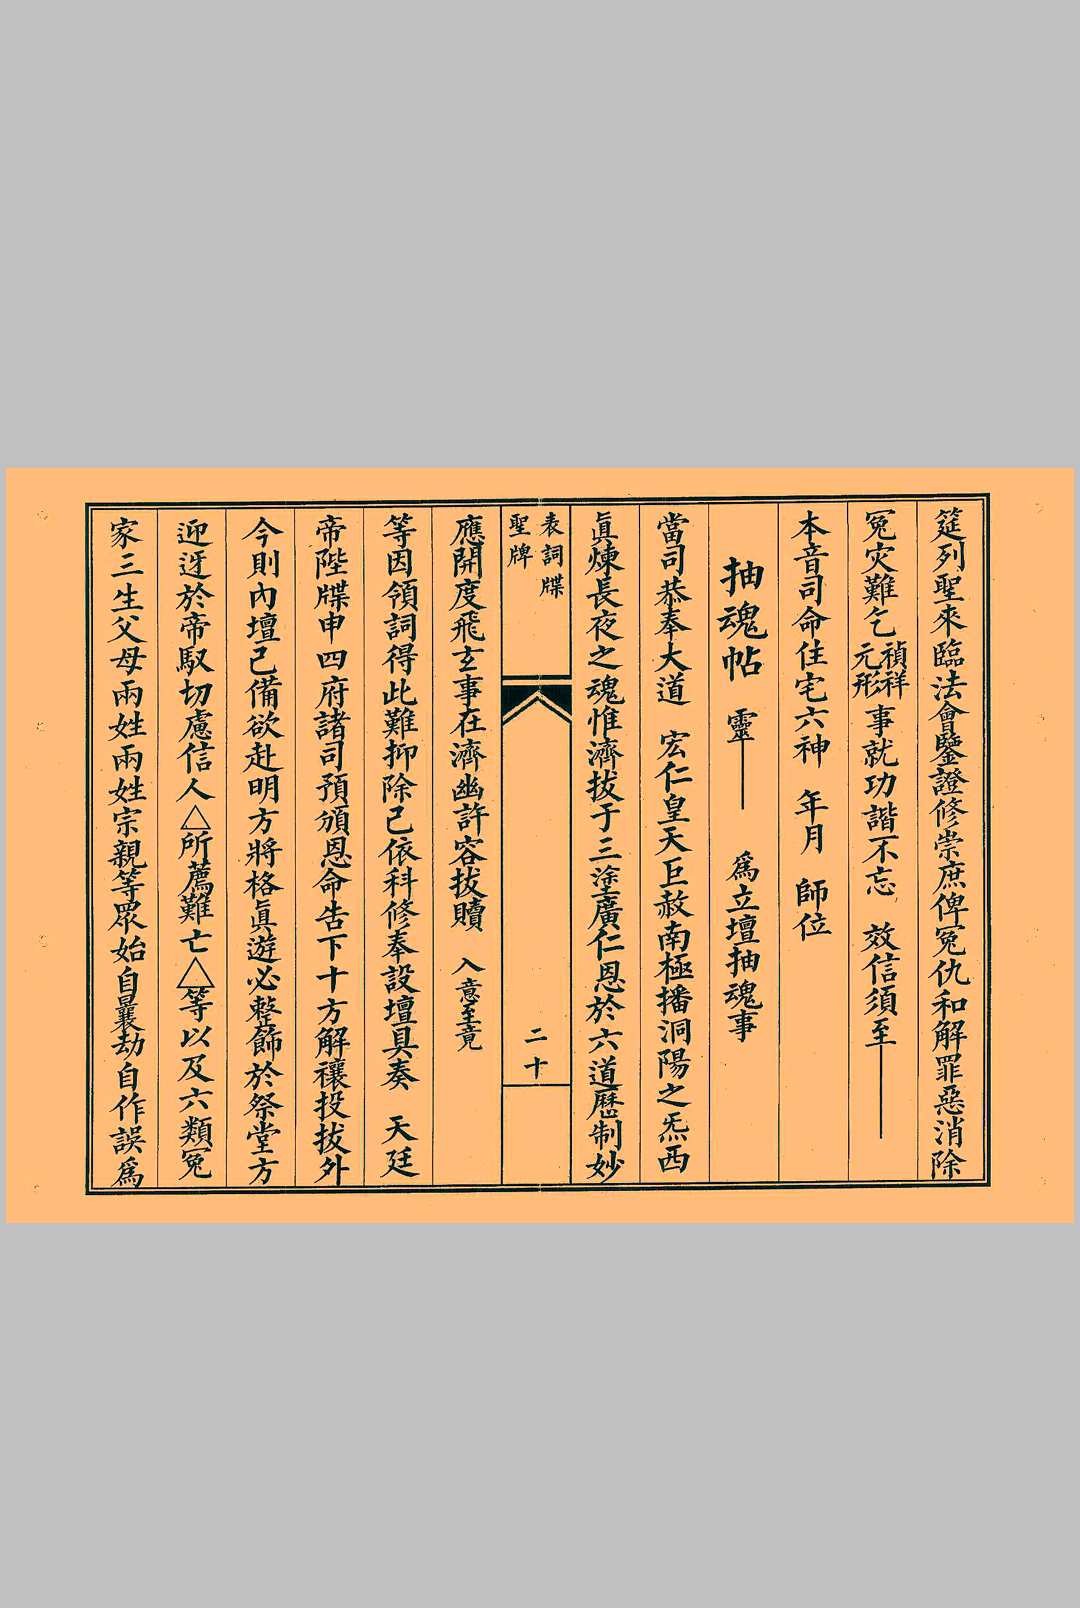 筵列聖來臨法會鑒證修崇庶俾冤仇和解罪惡消除
冤災難乞禎祥元形事就功諧不忘　效信須至
本音司命住宅六神　年月　師位
抽魂帖　靈　爲立壇抽魂事
當司恭奉大道　宏仁皇天巨赦南極播洞陽之炁西
眞煉長夜之魂惟濟拔于三塗廣仁恩於六道曆制妙
表詞牒
聖牌
二十
應開度飛玄事在濟幽許容拔贖　入意至竟
等因領詞得此難抑除已依科修奉設壇具奏　天廷
帝陛牒申四府諸司預頒恩命告下十方解禳投拔外
今則內壇已備欲赴明方將格眞遊必整飾於祭堂方
迎迓於帝馭切慮信人△所薦難亡△等以及六類冤
家三生父母兩姓兩姓宗親等眾始自曩劫自作誤爲